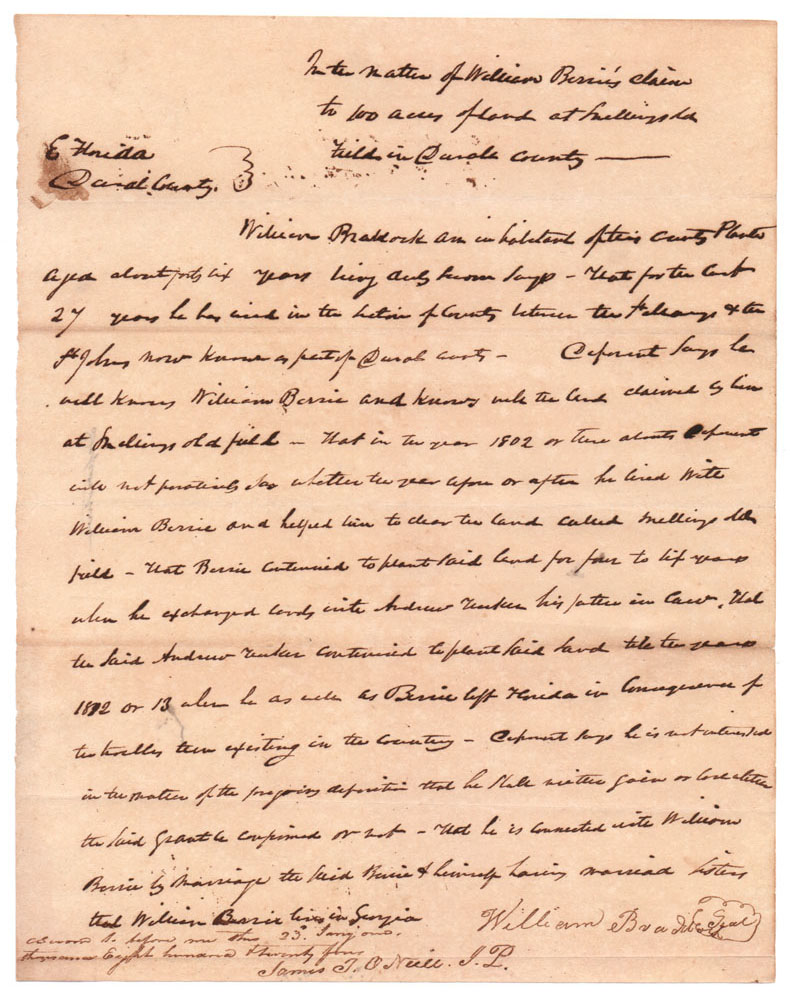 In the matter of William Berrie's claim
to 100 acres of land at Snellings old
field in Duval County
E Florida
Duval County.
William Braddock an inhabitant of this County Planter
aged about forty six years being duly sworn says - that for the last
27 years he has lived in the section of County between the St Marys & the
St Johns now known as part of Duval County - Deponent says he
well knows William Berrie and knows well the land claimed by him
at Snellings old field - that in the year 1802 or there abouts Deponent
will not positively say whether the year before or after he lived with
William Berrie and helped him to clear the land called Snellings old
field - that Berrie continued to plant said land for four to six years
when he exchanged lands with Andrew Tucker his father in law, that
the said Andrew Tucker continued to plant said land till the years
1812 or 13 when he as well as Berrie left Florida in Consequence of
the troubles then existing in the Country - Deponent says he is not interested
in the matter of the foregoing deposition that he shall neither gain or lose whether
the said grant be confirmed or not - that he is connected with William
Berrie by Marriage the said Berrie & himself having married sisters
that William Berrie lives in Georgia
William Braddock Seal
Sworn to before me this 23d
thousand Eight hundred & twenty four
James T. O Neill. J. P.